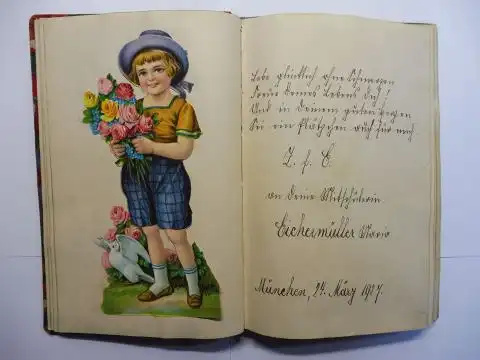 Lebe glücklich ohne Schmerzen
Freue Deines Lebens Dich!
Und in Deinem guten Herzen
Sei ein Plätzchen auch für mich.
Z. f. E.
an Deine Mitschülerin
Eichermüller Maria
München, 24. März 1927.